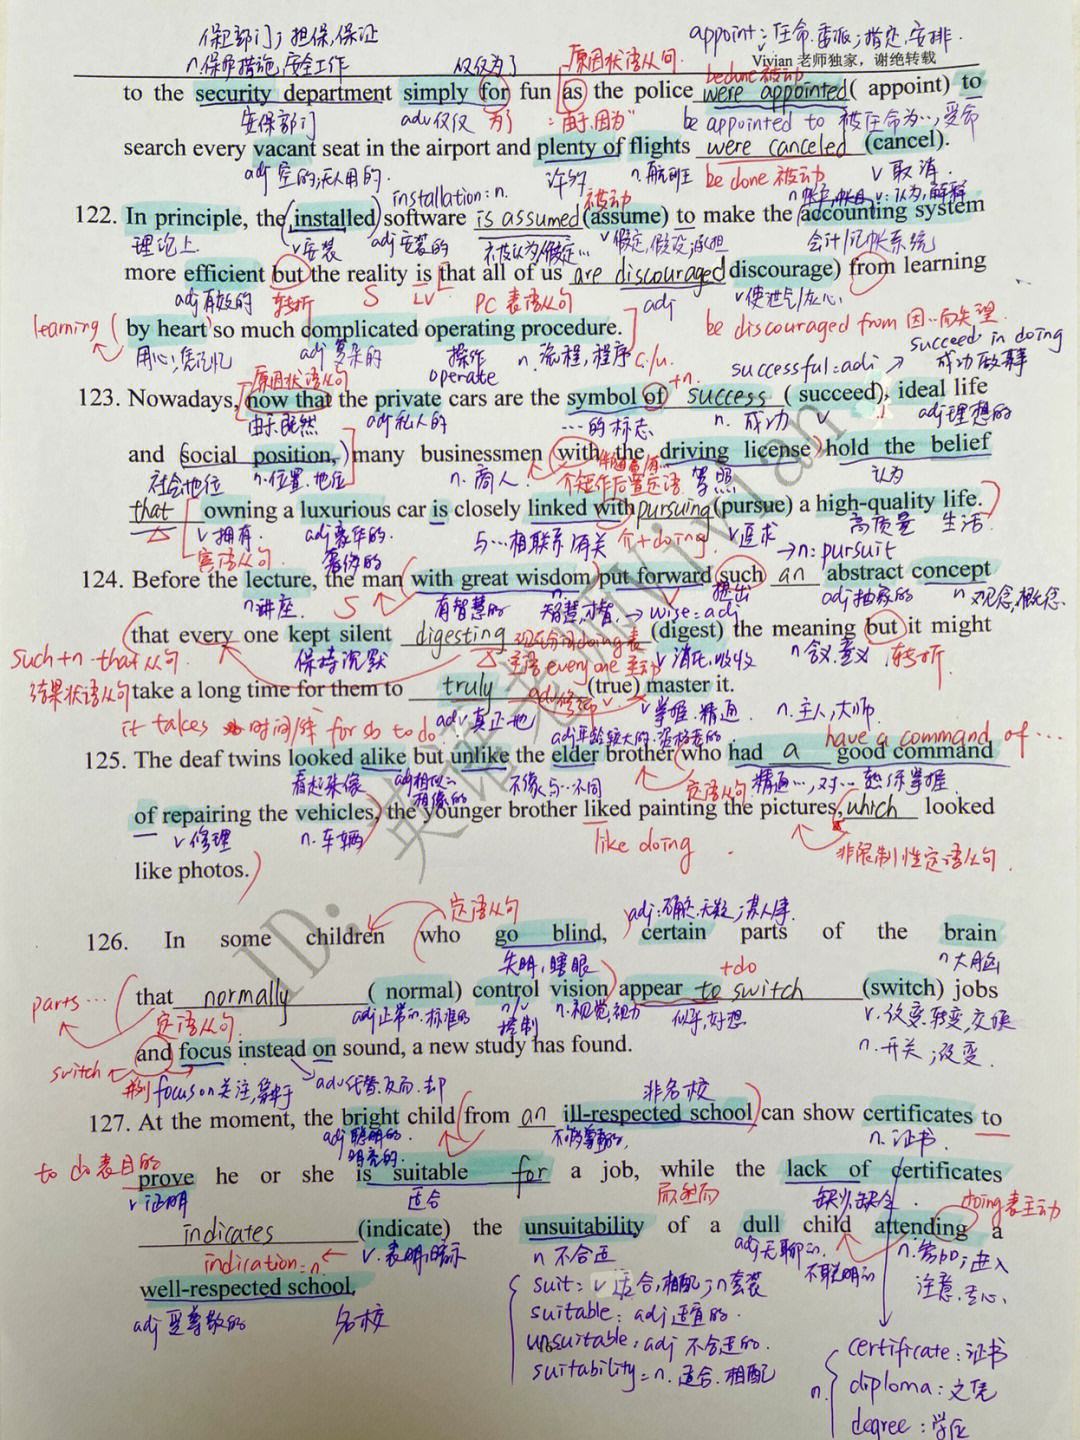 保卫部门；担保，保证
appoint：任命.委派；指定，安排.
n.保护措施，安全工作
仅仅为了
原因状语从句
Vivian 老师独家，谢绝转载
be done 被动
to the security department simply for fun as the police were appointed ( appoint) to
安保部门 adv仅仅 为了 =由于,因为" be appointed to 被任命为…,受命
search every vacant seat in the airport and plenty of flights were canceled (cancel).
adj 空的;无人用的. 许多 n.航班 be done 被动 v 取消.
installation：n. 被动 v：认为,解释
122. In principle, the installed software is assumed (assume) to make the accounting system
理论上 v安装 adj安装的 被认为/假定… v假定,假设;承担 会计/记帐系统
more efficient but the reality is that all of us are discouraged discourage) from learning
adj有效的 转折 S LV PC 表语从句 adj v使泄气/灰心
learning by heart so much complicated operating procedure. be discouraged from
用心;凭记忆 adj 复杂的 操作 n. 流程,程序 c./u. succeed in doing
operate successful=adj 成功做某事
原因状语从句 +n.
123. Nowadays, now that the private cars are the symbol of success ( succeed), ideal life
由于,既然 adj私人的 …的标志 n. 成功 v adj理想的
and social position, many businessmen with the driving license hold the belief
社会地位 n.位置.地位 n. 商人. 介短作后置定语 驾照 认为
that owning a luxurious car is closely linked with pursuing (pursue) a high-quality life.
v拥有. adj豪华的. 与…相联系/有关 介+doing. v追求 高质量 生活
宾语从句 奢侈的 →n: pursuit
124. Before the lecture, the man with great wisdom put forward such an abstract concept
n讲座. S 有智慧的 n.智慧,才智. → wise=adj 提出 adj抽象的 n 观念,概念.
that every one kept silent digesting (digest) the meaning but it might
such+n that从句 保持沉默 主语everyone主动 v 消化,吸收 n含义.意义 转折
结果状语从句 take a long time for them to truly (true) master it.
it takes 时间 for sb to do adv真正地 adv修饰v v掌握.精通. n.主人,大师.
adj年龄较大的. have a command of …
125. The deaf twins looked alike but unlike the elder brother who had a good command
看起来像 adj相似的 不像,与…不同 定语从句 精通…,对…熟练掌握
of repairing the vehicles, the younger brother liked painting the pictures, which looked
v 修理 n.车辆 like doing 非限制性定语从句.
like photos.
定语从句
126. In some children who go blind, certain parts of the brain
失明,瞎眼 +do n大脑
parts… that normally ( normal) control vision appear to switch (switch) jobs
定语从句. adj正常的.标准的 n/v 控制 n.视觉,视力 似乎,好想 v.改变.转变,交换
and focus instead on sound, a new study has found. n.开关；改变.
switch 并列 focus on 关注, adv代替.反而.却
非名校
127. At the moment, the bright child from an ill-respected school can show certificates to
adj聪明的. 明亮的. n.证书.
to do 表目的 prove he or she is suitable for a job, while the lack of certificates
v证明 适合 而,然而 缺少,缺乏. doing表主动
indicates (indicate) the unsuitability of a dull child attending a
indication=n v.表明,暗示 n 不合适 adj无聊的. 不聪明的 n.参加;进入
well-respected school. suit：v 适合,相配；n套装 注意.专心.
adj 受尊敬的 名校 suitable：adj 适宜的.
unsuitable：adj 不合适的.
suitability=n. 适合.相配
n. certificate：证书
diploma：文凭
degree：学位
ID: 英语老师Vivian